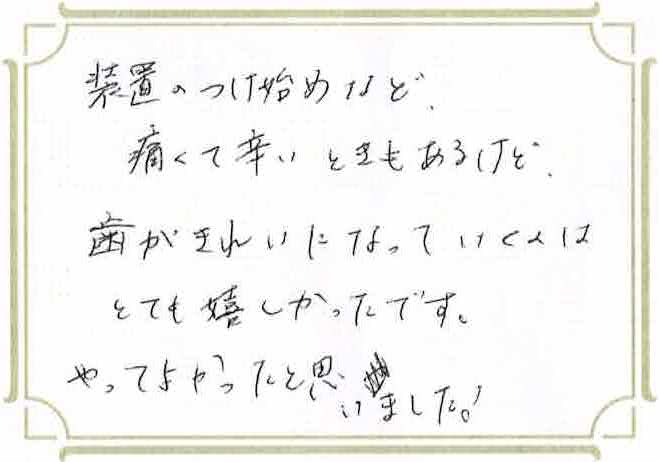 装置のつけ始めなど、
痛くて辛いときもあるけど、
歯がきれいになっていくのは
とても嬉しかったです。
やってよかったと思いました。!